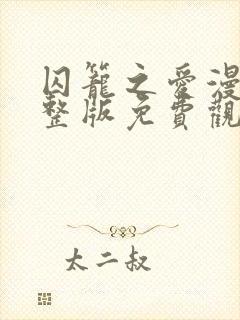 囚籠之愛漫
整版免費觀
太二叔